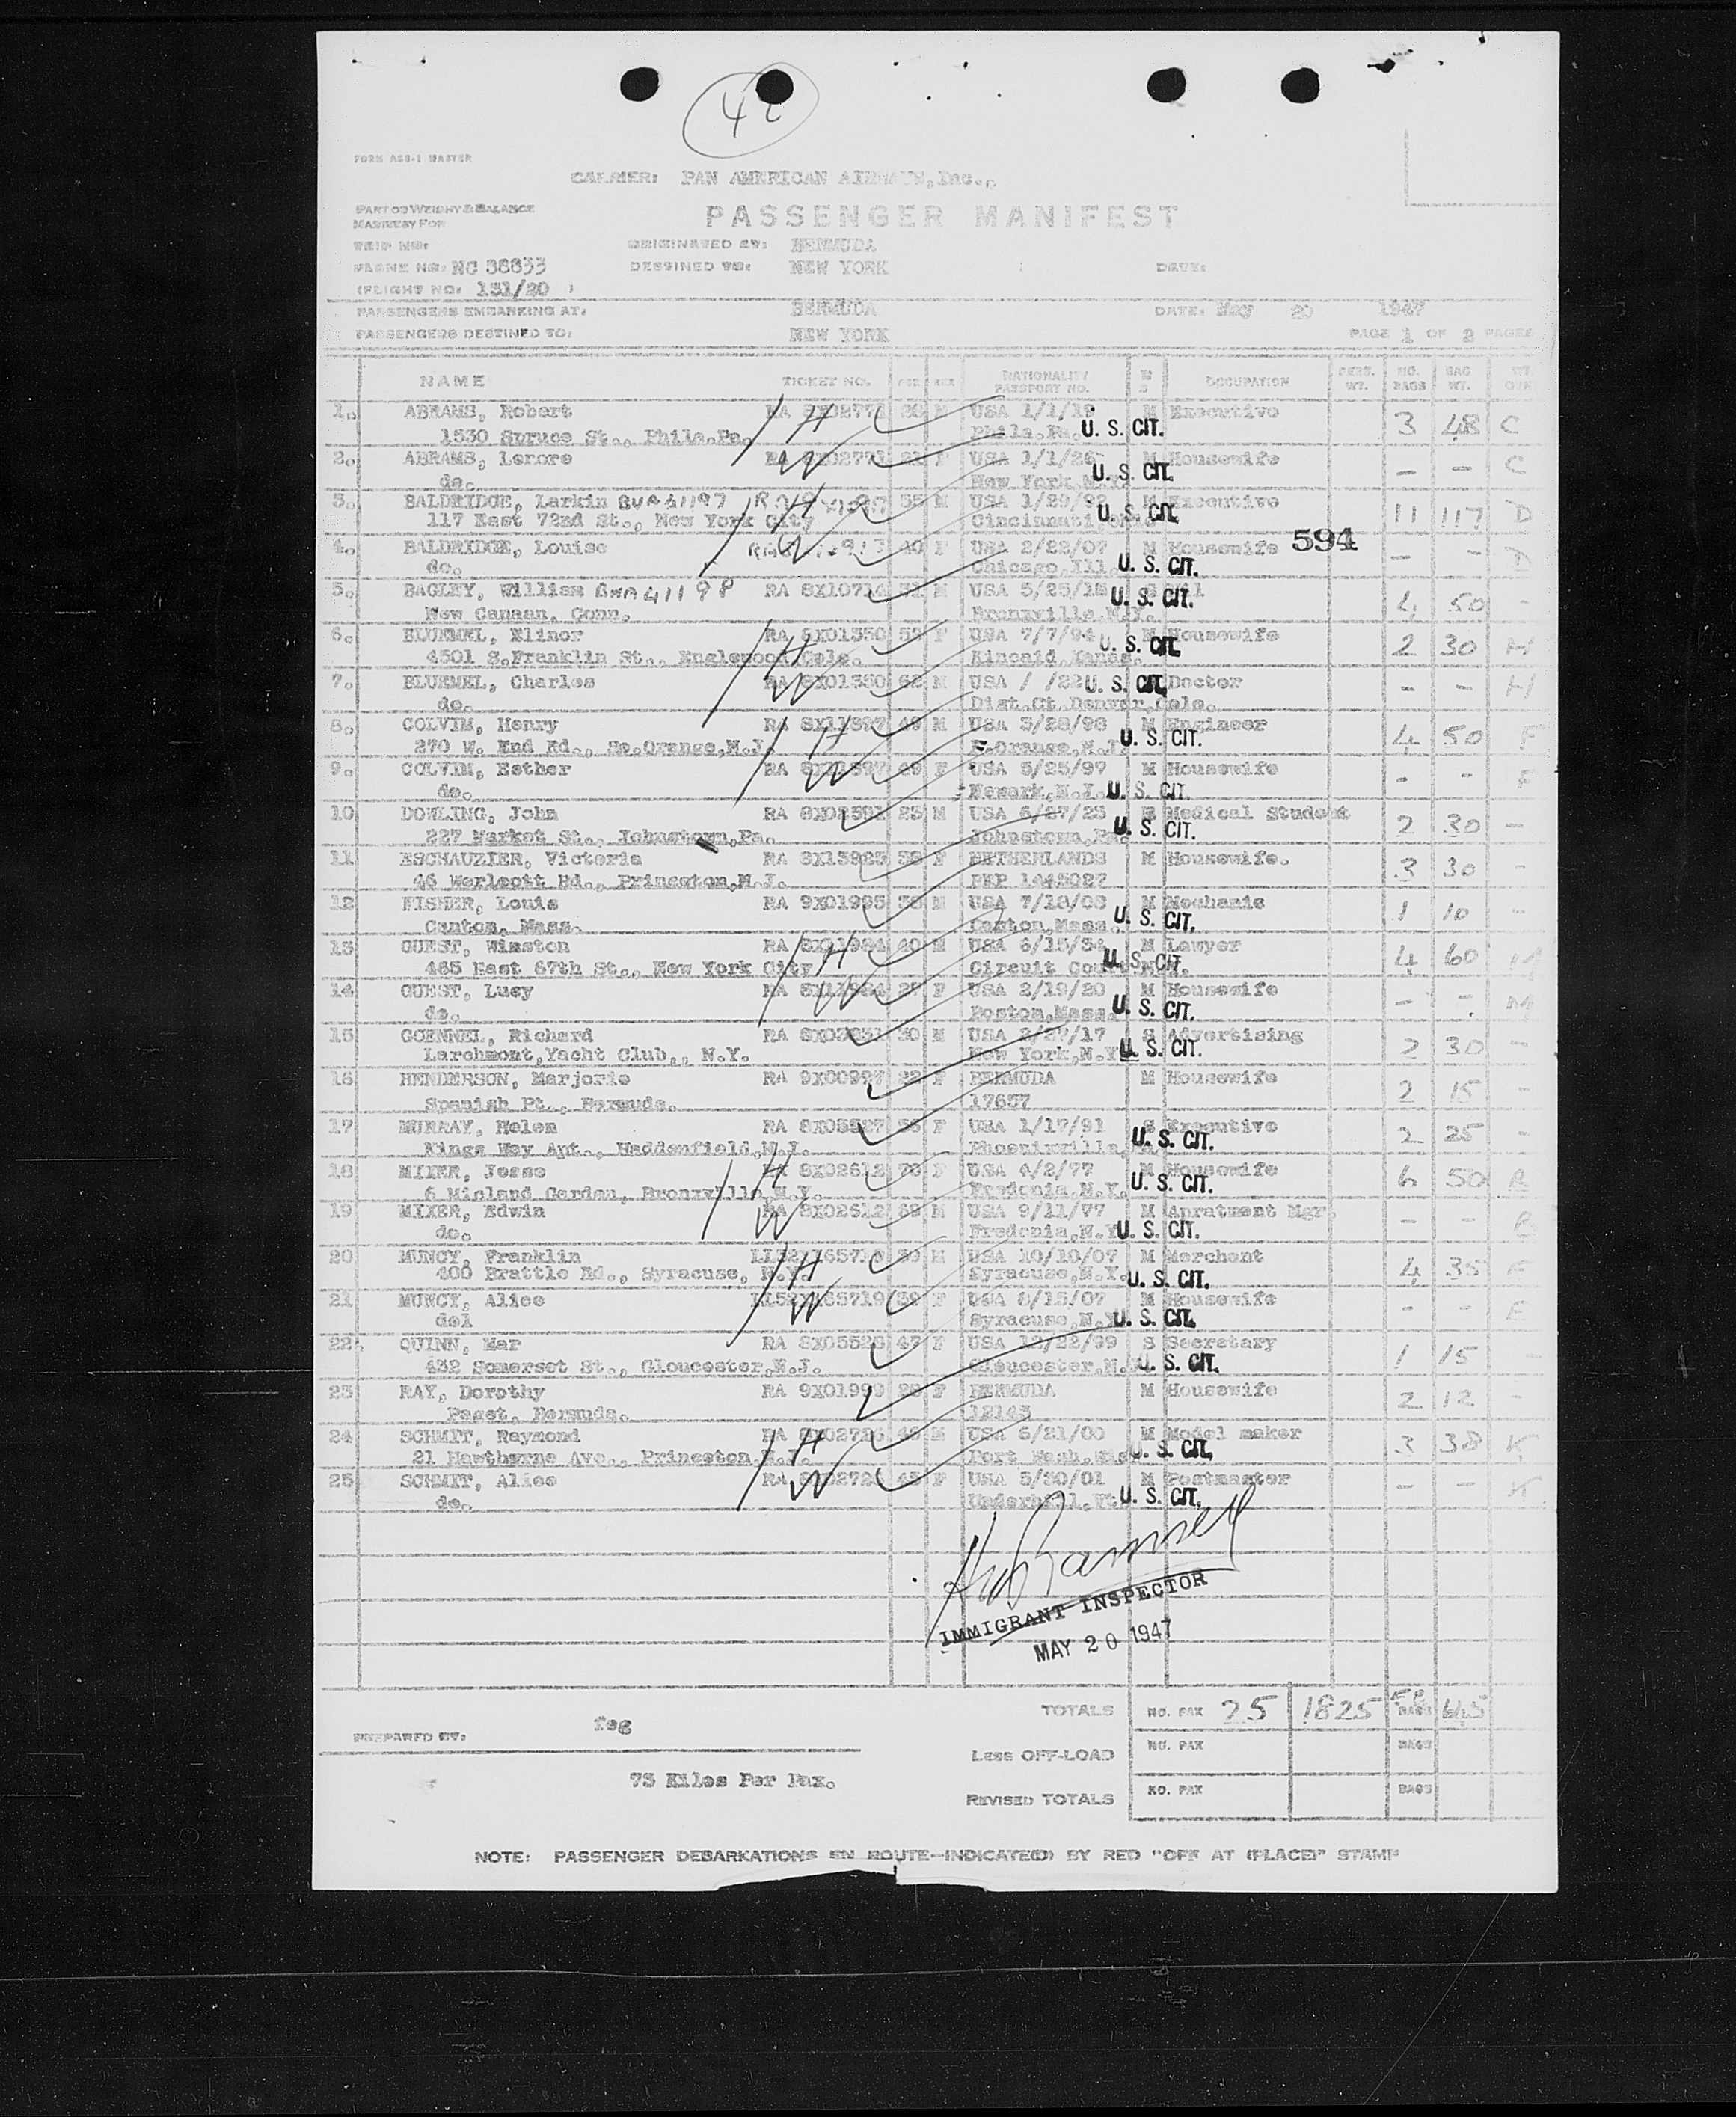 42
FORM ASB-1 MASTER
CARRIER: PAN AMERICAN AIRWAYS, Inc.,
PART OF WEIGHT & BALANCE
MANIFEST FOR
PASSENGER MANIFEST
TRIP NO:
ORIGINATED AT: BERMUDA
PLANE NO: NC 38633
DESTINED TO: NEW YORK
DATE:
(FLIGHT NO: 131/20 )
PASSENGERS EMBARKING AT: BERMUDA DATE: May 20 1947
PASSENGERS DESTINED TO: NEW YORK PAGE 1 OF 2 PAGES
NAME TICKET NO. AGE SEX NATIONALITY PASSPORT NO. M S OCCUPATION PERS. WT. NO. BAGS BAG WT.
1. ABRAMS, Robert M USA 1/1/19 M Executive 3 48 C
1530 Spruce St., Phila.Pa. Phila.Pa. U. S. CIT.
2. ABRAMS, Lenore F USA 1/1/26 M Housewife - - C
do. New York,N.Y. U. S. CIT.
3. BALDRIDGE, Larkin BUA41197 55 M USA 1/29/92 M Executive 11 117 D
117 East 72nd St., New York City Cincinnati U. S. CIT.
594
4. BALDRIDGE, Louise 40 F USA 2/22/07 M Housewife - - D
do. Chicago,Ill. U. S. CIT.
5. BAGLEY, William BUA41198 RA 8X10714 31 M USA 5/25/15 S 4 50 -
New Canaan, Conn. Bronxville,N.Y. U. S. CIT.
6. BLUEMEL, Elinor RA 8X01350 52 F USA 7/7/94 M Housewife 2 30 H
4501 S.Franklin St., Englewood,Colo. Kincaid,Kansas. U. S. CIT.
7. BLUEMEL, Charles RA 8X01350 62 M USA / /22 U. S. CIT. Doctor - - H
do. Dist.Ct.Denver,Colo.
8. COLVIM, Henry RA 8X11597 49 M USA 5/28/98 M Engineer 4 50 F
270 W. End Rd., So.Orange,N.J. E.Orange,N.J. U. S. CIT.
9. COLVIM, Esther 49 F USA 5/25/97 M Housewife - - F
do. Newark,N.J. U. S. CIT.
10 DOWLING, John RA 23 M USA 6/27/23 S Medical Student 2 30 -
227 Market St., Johnstown,Pa. Johnstown,Pa. U. S. CIT.
11 ESCHAUZIER, Victoria RA 8X13923 F NETHERLANDS M Housewife. 3 30 -
46 Princeton,N.J. PEP 1445027
12 FISHER, Louis RA 9X01995 38 M USA 7/18/08 M Mechanic 1 10 -
Canton, Mass. Canton,Mass. U. S. CIT.
13 GUEST, Winston 40 M USA 6/15/34 M Lawyer 4 60 M
465 East 67th St., New York City Circuit Court U. S. CIT.
14 GUEST, Lucy 27 F USA 2/19/20 M Housewife - - M
do. Boston,Mass. U. S. CIT.
15 GOENNEL, Richard 30 M USA 17 S Advertising 2 30 -
Larchmont,Yacht Club,, N.Y. New York,N.Y. U. S. CIT.
16 HENDERSON, Marjorie RA 9X00997 F BERMUDA M Housewife 2 15 -
Spanish Pt., Bermuda. 17657
17 MURRAY, Helen F USA 1/17/91 S Executive 2 25 -
Kings Way Apt., Haddonfield,N.J. Phoenixville, U. S. CIT.
18 MIXER, Jesse 8X02612 70 F USA 4/2/77 M Housewife 6 50
6 Midland Garden, Bronxville,N.Y. Fredonia,N.Y. U. S. CIT.
19 MIXER, Edwin 8X02612 69 M USA 9/11/77 M Apratment Mgr. - -
do. Fredonia,N.Y. U. S. CIT.
20 MUNCY, Franklin 39 M USA 10/10/07 M Merchant 4 35 E
400 Brattle Rd., Syracuse, N.Y. Syracuse,N.Y. U. S. CIT.
21 MUNCY, Alice 39 F USA 8/15/07 M Housewife - - E
del Syracuse,N.Y. U. S. CIT.
22 QUINN, Mar RA 8X05528 47 F USA 12/22/99 S Secretary 1 15 -
432 Somerset St., Gloucester,N.J. Gloucester,N.J. U. S. CIT.
23 RAY, Dorothy RA 9X01999 F BERMUDA M Housewife 2 12 -
Paget, Bermuda. 12143
24 SCHMIT, Raymond RA 8X02726 46 M USA 6/21/00 M Model maker 3 38 K
21 Hawthorne Ave., Princeton N.J. Port Wash.Wis. U. S. CIT.
25 SCHMIT, Alice RA 45 F USA 5/30/01 M Postmaster - - K
do. Underhill,Vt. U. S. CIT.
IMMIGRANT INSPECTOR
MAY 20 1947
TOTALS NO. PAX 25 1825 58 BAGS 645
PREPARED BY: feg
NO. PAX BAGS
LESS OFF-LOAD
73 Kilos Per Pax.
NO. PAX BAGS
REVISED TOTALS
NOTE: PASSENGER DEBARKATIONS EN ROUTE—INDICATE(D) BY RED "OFF AT (PLACE)" STAMP